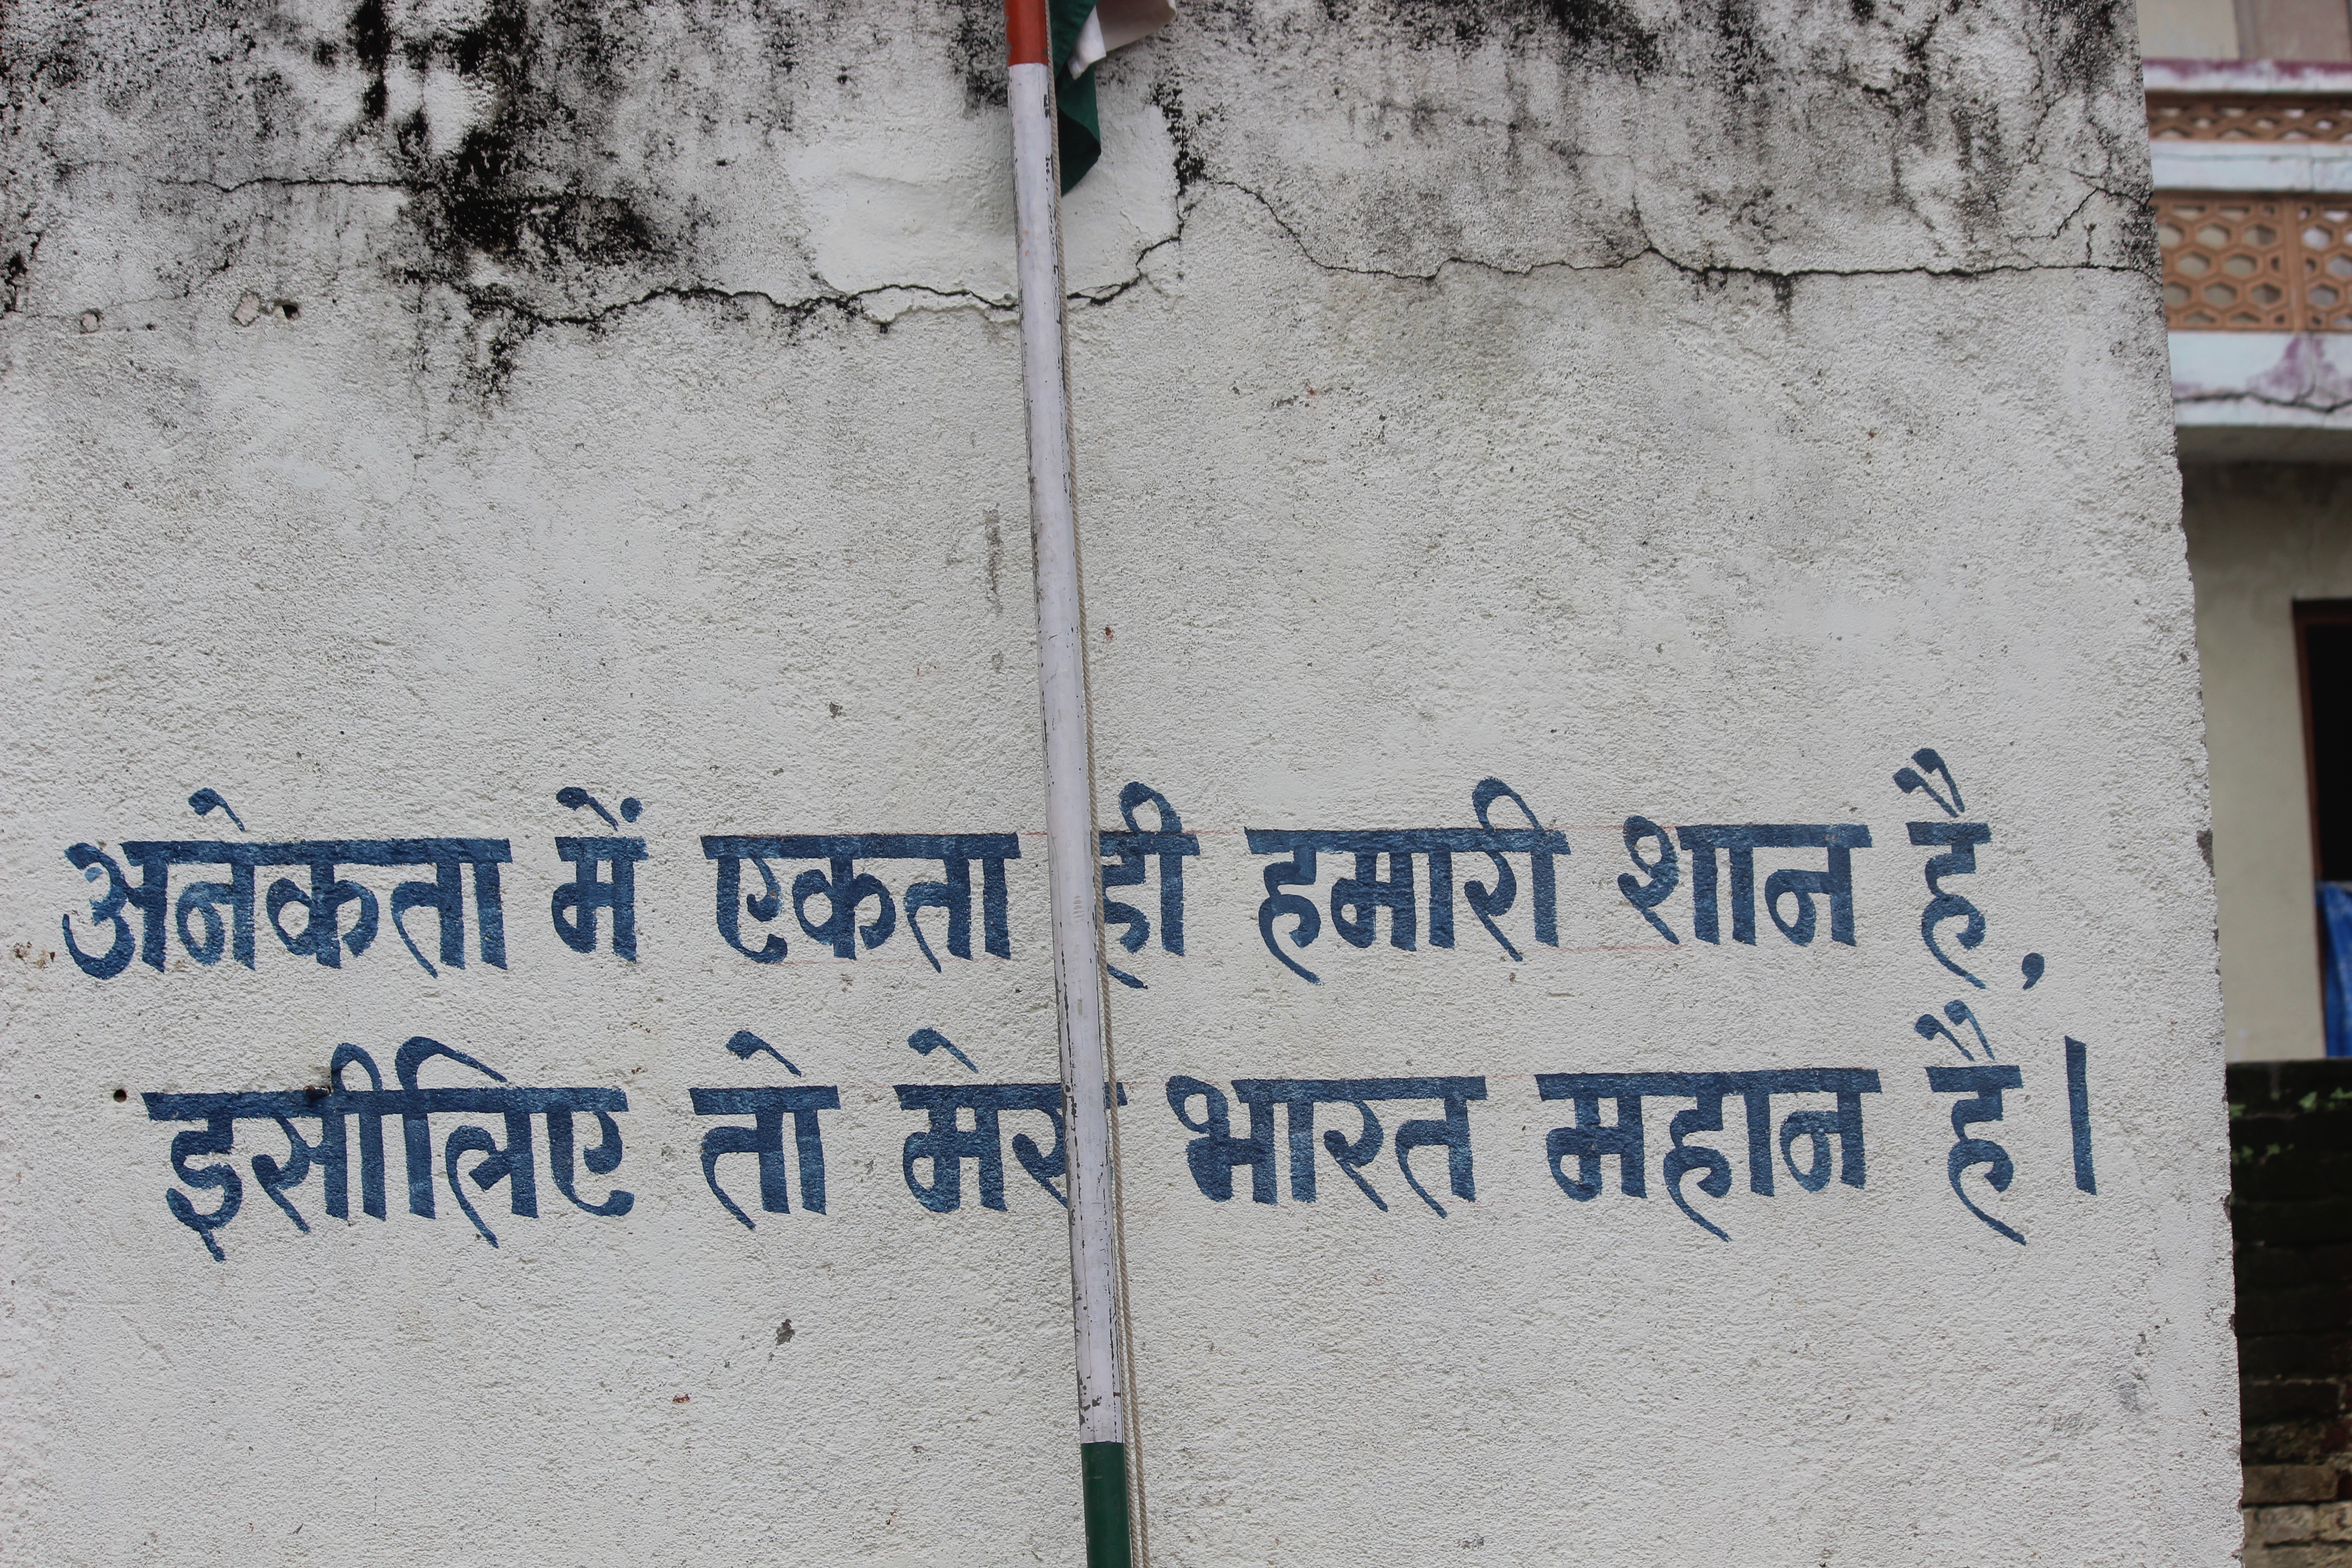 अनेकता में एकता ही हमारी शान है,
इसीलिए तो मेरा भारत महान है।